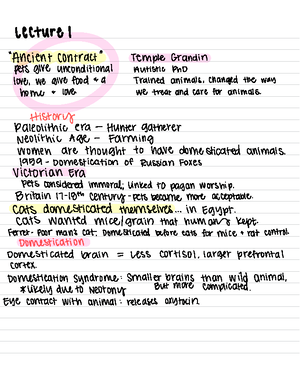 Lecture 1
"Ancient Contract"
Pets give unconditional
love, we give food + a
home + love
Temple Grandin
Autistic PhD
Trained animals, changed the way
we treat and care for animals.
History
Paleolithic era - Hunter gatherer
Neolithic Age - Farming
Women are thought to have domesticated animals.
1959 - Domestication of Russian Foxes
Victorian Era
Pets considered immoral, linked to pagan worship.
Britain 17-18th century - pets became more acceptable.
Cats domesticated themselves... in Egypt.
Cats wanted mice/grain that humans kept.
Ferret - Poor man's cat. Domesticated before cats for mice + rat control.
Domestication
Domesticated brain = Less cortisol, larger prefrontal
cortex.
Domestication Syndrome: Smaller brains than wild animal,
*Likely due to Neotony But more complicated.
Eye contact with animal: releases oxytocin.